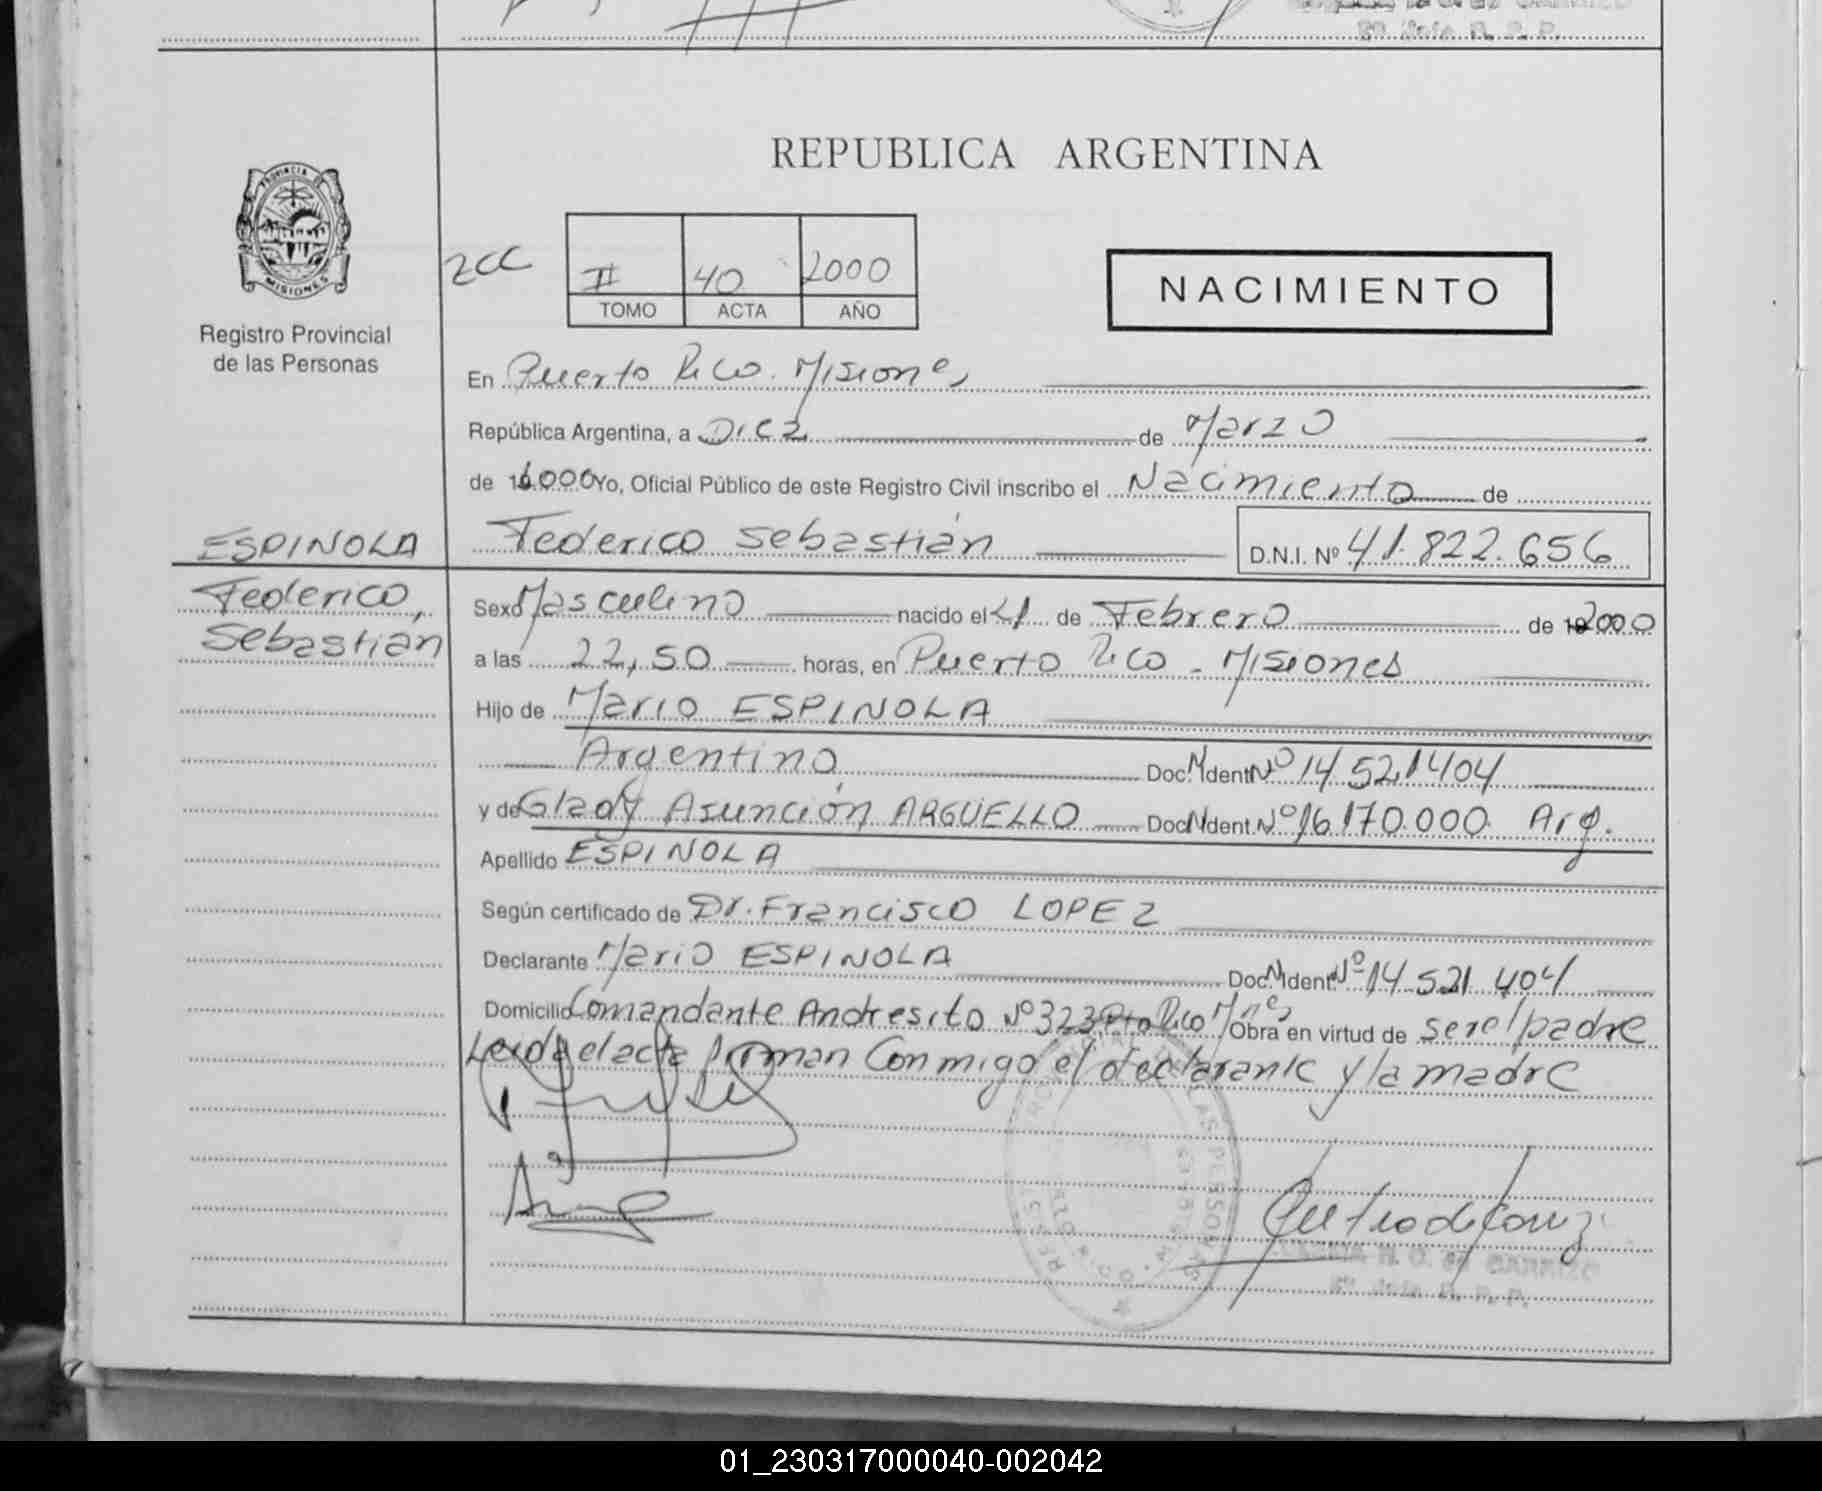 REPUBLICA ARGENTINA
PROVINCIA DE
MISIONES
Registro Provincial
de las Personas
2CC
II 40 2000
TOMO ACTA AÑO
NACIMIENTO
En Puerto Rico. Misiones
República Argentina, a Diez de Marzo
de 2000 Yo, Oficial Público de este Registro Civil inscribo el Nacimiento de
ESPINOLA Federico Sebastián D.N.I. Nº 41.822.656
Federico,
Sebastian
Sexo Masculino nacido el 21 de Febrero de 2000
a las 22,50 horas, en Puerto Rico - Misiones
Hijo de Mario ESPINOLA
Argentino Doc. Ident. Nº 14 521404
y de Glady Asunción ARGUELLO Doc. Ident. Nº 16.170.000 Arg.
Apellido ESPINOLA
Según certificado de Dr. Francisco LOPEZ
Declarante Mario ESPINOLA Doc. Ident. Nº 14 521 404
Domicilio Comandante Andresito Nº 323 Pto Rico Mnes Obra en virtud de ser el padre
Leida el acta firman Conmigo el declarante y la madre
R. P. P.
01_230317000040-002042